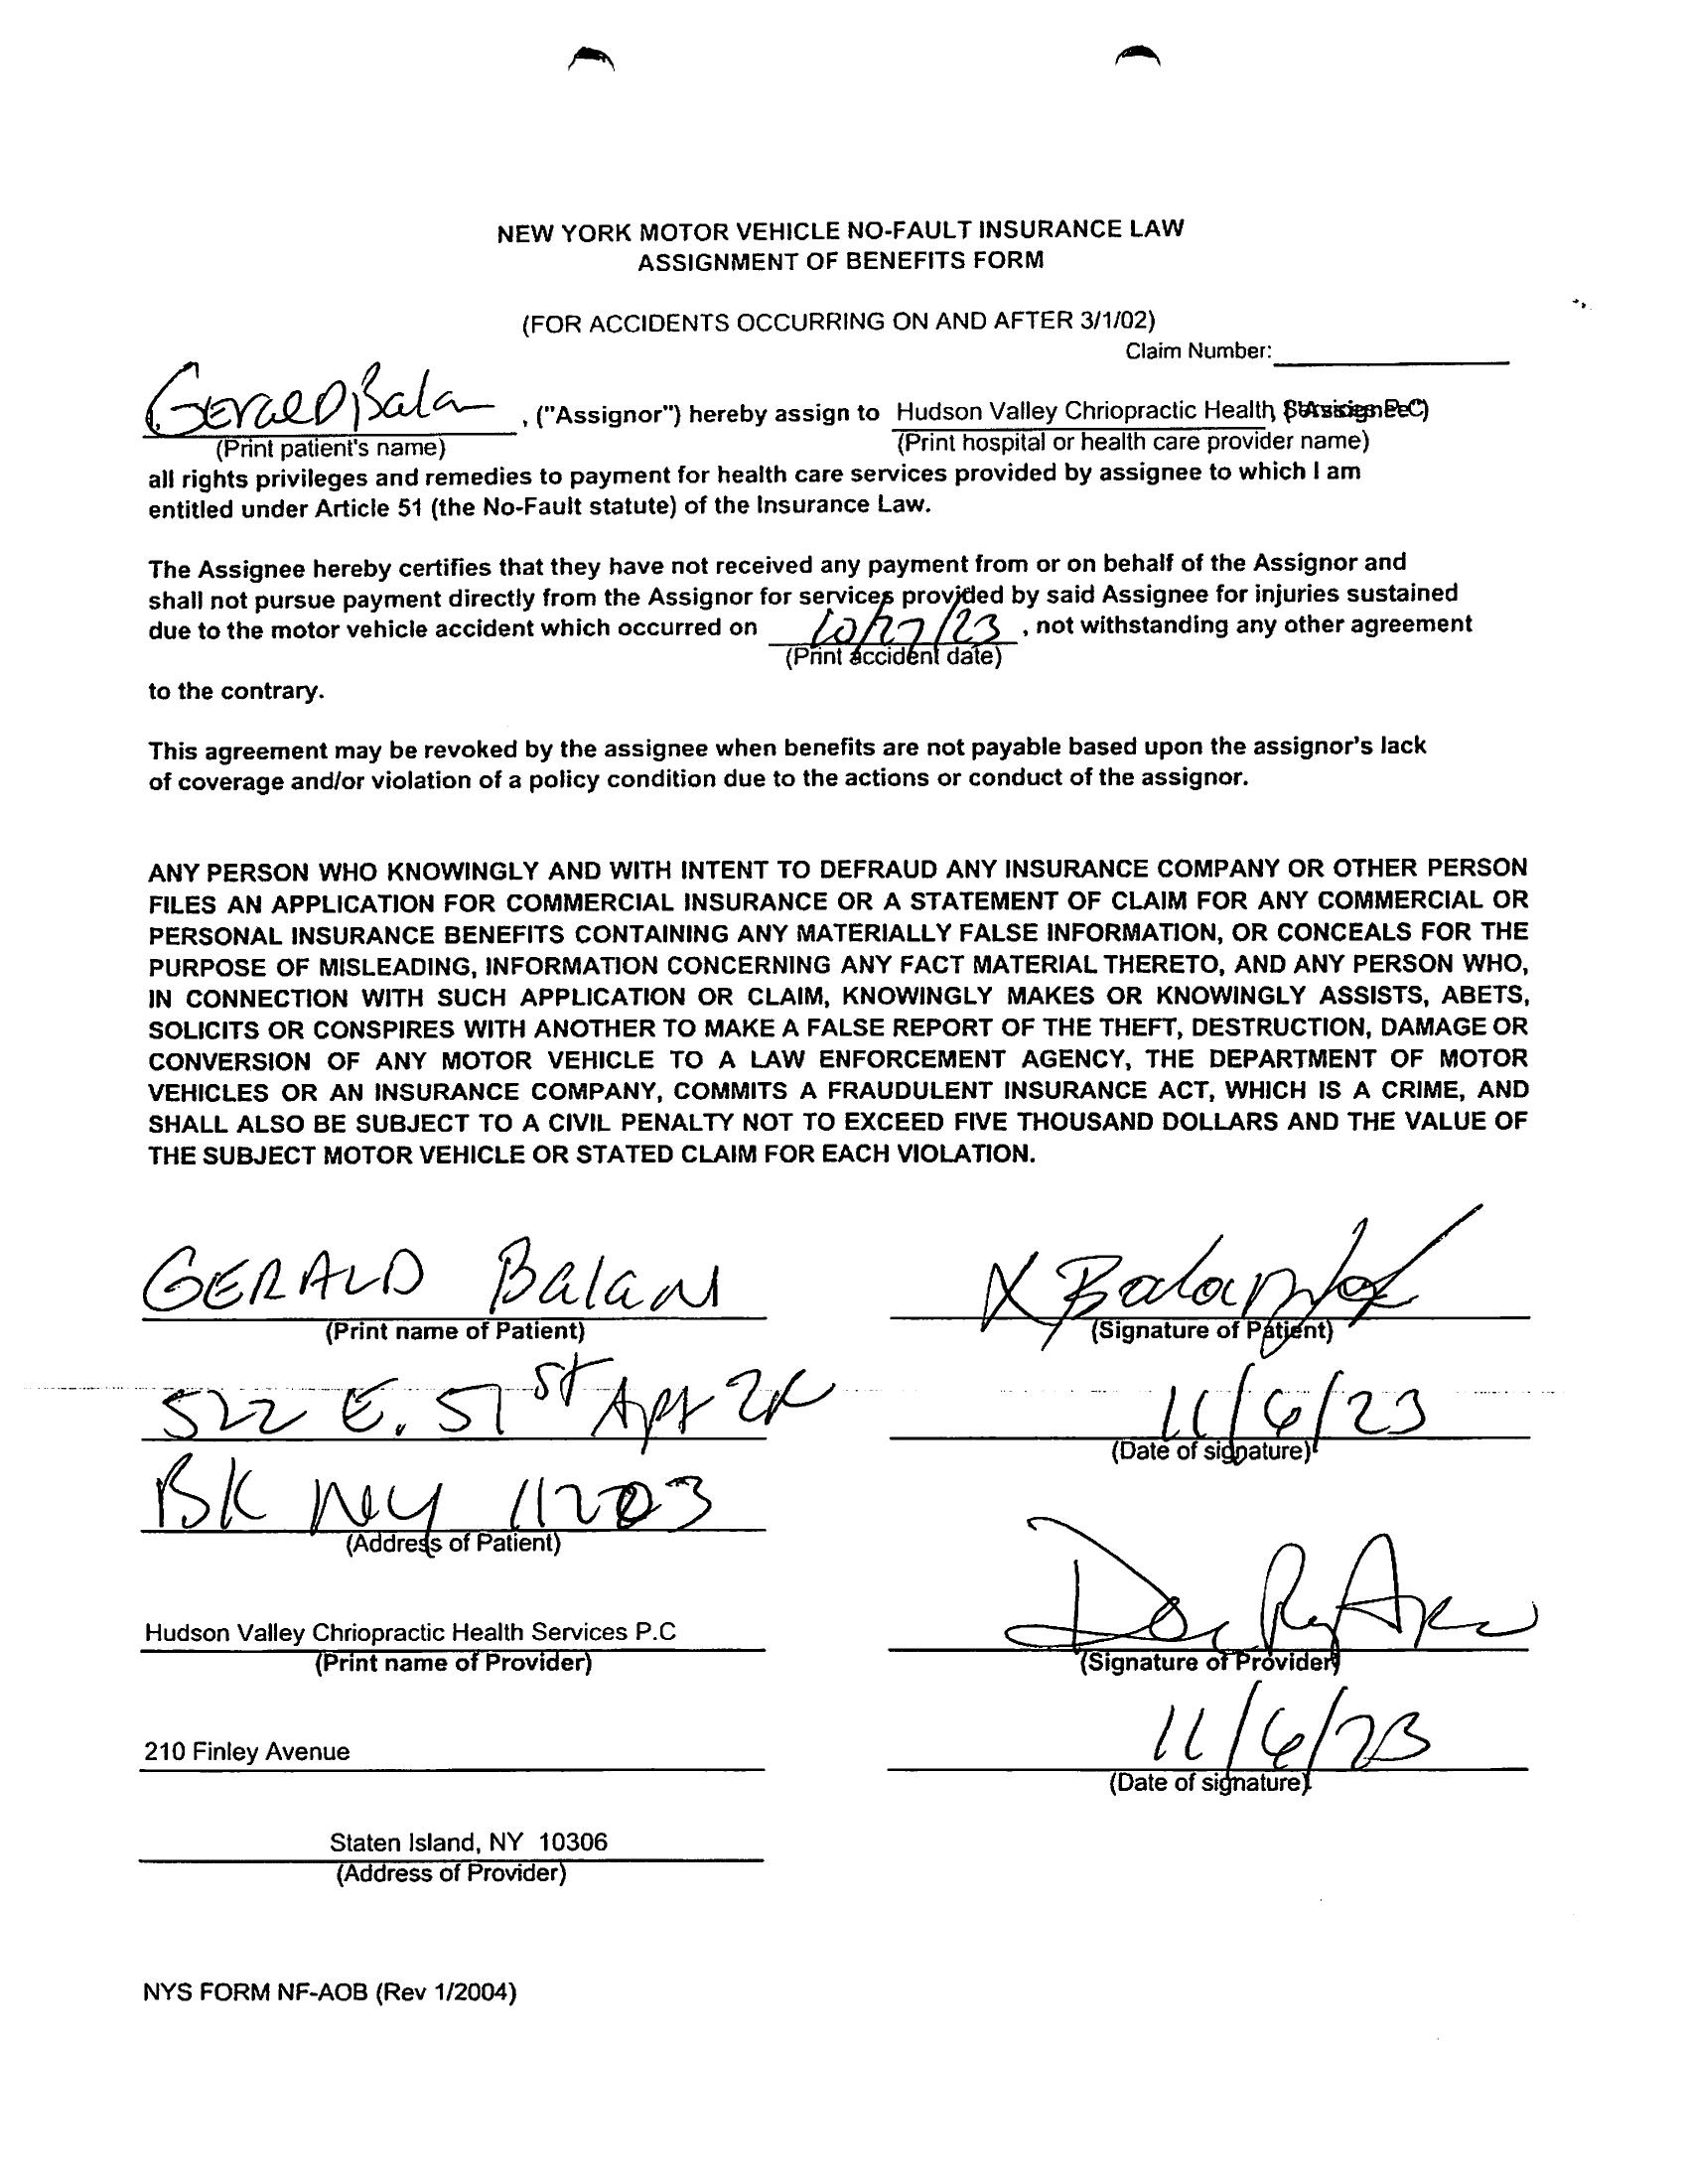 NEW YORK MOTOR VEHICLE NO-FAULT INSURANCE LAW
ASSIGNMENT OF BENEFITS FORM
(FOR ACCIDENTS OCCURRING ON AND AFTER 3/1/02)
Claim Number:
Gerald Balan, ("Assignor") hereby assign to Hudson Valley Chriopractic Health
(Print patient's name) (Print hospital or health care provider name)
all rights privileges and remedies to payment for health care services provided by assignee to which I am
entitled under Article 51 (the No-Fault statute) of the Insurance Law.
The Assignee hereby certifies that they have not received any payment from or on behalf of the Assignor and
shall not pursue payment directly from the Assignor for services provided by said Assignee for injuries sustained
due to the motor vehicle accident which occurred on 10/27/23, not withstanding any other agreement
(Print accident date)
to the contrary.
This agreement may be revoked by the assignee when benefits are not payable based upon the assignor's lack
of coverage and/or violation of a policy condition due to the actions or conduct of the assignor.
ANY PERSON WHO KNOWINGLY AND WITH INTENT TO DEFRAUD ANY INSURANCE COMPANY OR OTHER PERSON
FILES AN APPLICATION FOR COMMERCIAL INSURANCE OR A STATEMENT OF CLAIM FOR ANY COMMERCIAL OR
PERSONAL INSURANCE BENEFITS CONTAINING ANY MATERIALLY FALSE INFORMATION, OR CONCEALS FOR THE
PURPOSE OF MISLEADING, INFORMATION CONCERNING ANY FACT MATERIAL THERETO, AND ANY PERSON WHO,
IN CONNECTION WITH SUCH APPLICATION OR CLAIM, KNOWINGLY MAKES OR KNOWINGLY ASSISTS, ABETS,
SOLICITS OR CONSPIRES WITH ANOTHER TO MAKE A FALSE REPORT OF THE THEFT, DESTRUCTION, DAMAGE OR
CONVERSION OF ANY MOTOR VEHICLE TO A LAW ENFORCEMENT AGENCY, THE DEPARTMENT OF MOTOR
VEHICLES OR AN INSURANCE COMPANY, COMMITS A FRAUDULENT INSURANCE ACT, WHICH IS A CRIME, AND
SHALL ALSO BE SUBJECT TO A CIVIL PENALTY NOT TO EXCEED FIVE THOUSAND DOLLARS AND THE VALUE OF
THE SUBJECT MOTOR VEHICLE OR STATED CLAIM FOR EACH VIOLATION.
GERALD Balan X
(Print name of Patient) (Signature of Patient)
522 E. 51 st Apt 2K 11/6/23
(Date of signature)
BK NY 11203
(Address of Patient)
Hudson Valley Chriopractic Health Services P.C
(Print name of Provider) (Signature of Provider)
210 Finley Avenue 11/6/23
(Date of signature)
Staten Island, NY 10306
(Address of Provider)
NYS FORM NF-AOB (Rev 1/2004)